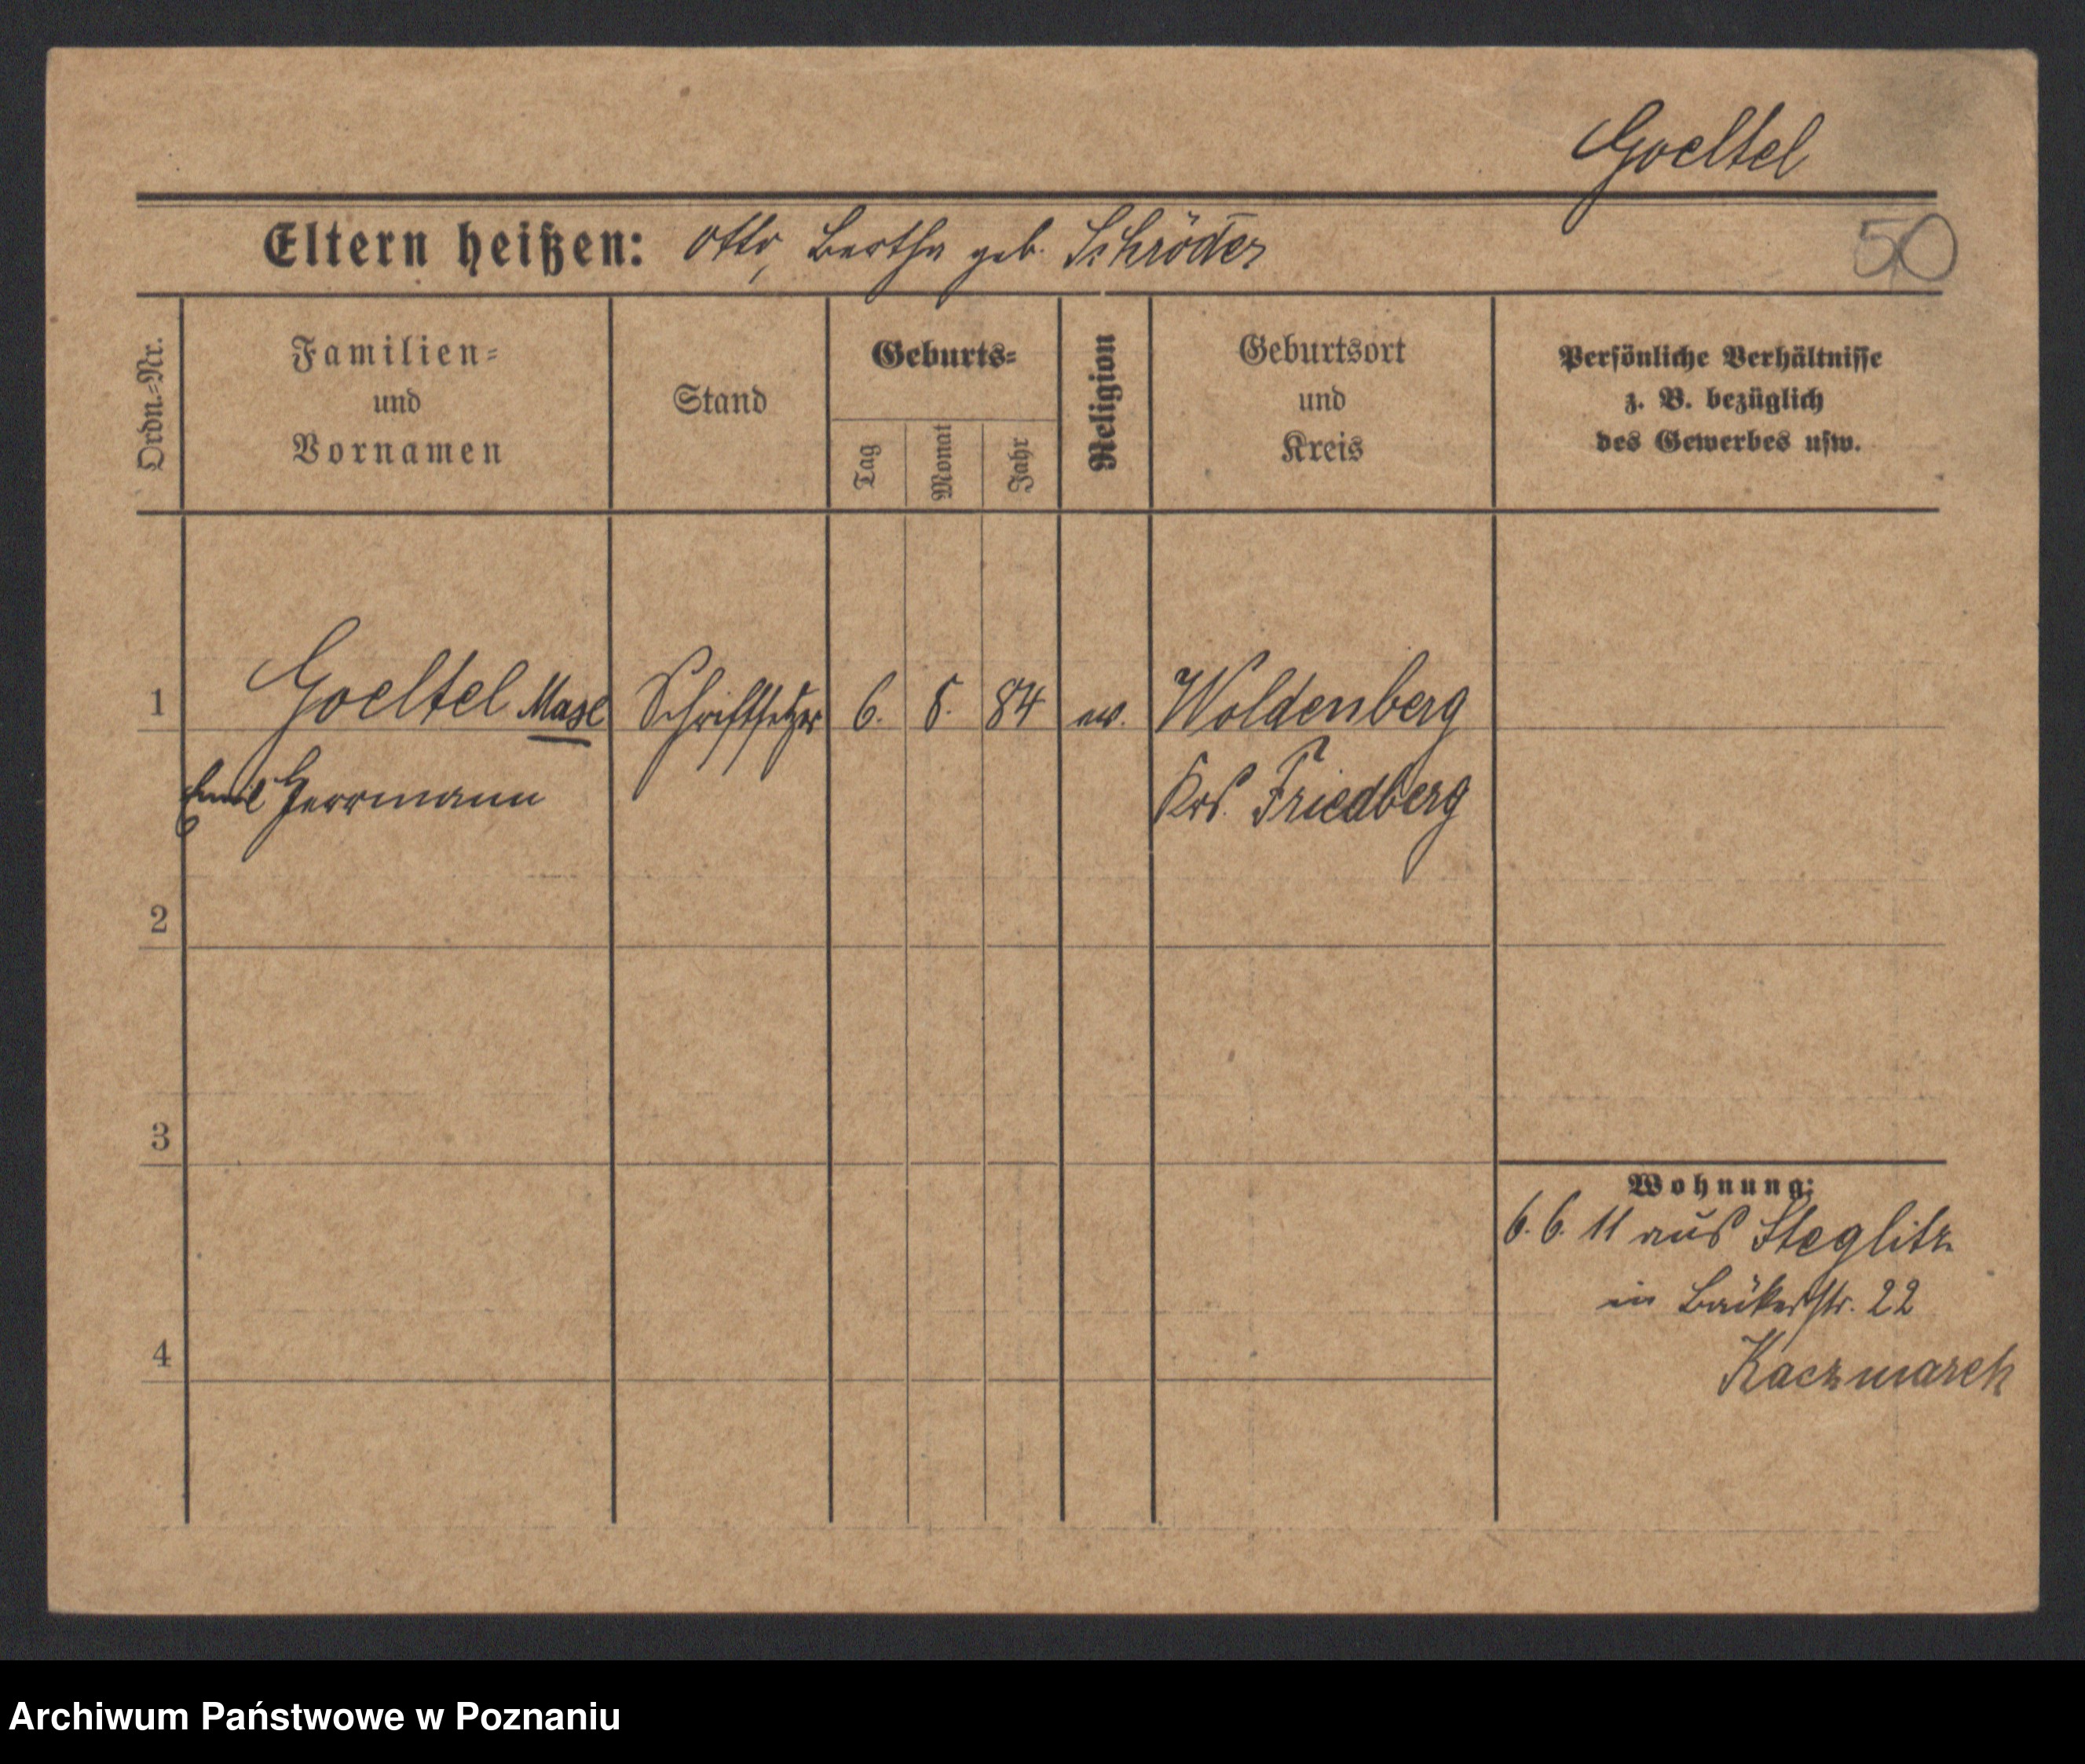 Goeltel
Eltern heißen: Otto, Bertha geb. Schröder
50
Ordn.-Nr.
Familien-
und
Vornamen
Stand
Geburts-
Tag
Monat
Jahr
Religion
Geburtsort
und
Kreis
Persönliche Verhältnisse
z. B. bezüglich
des Gewerbes usw.
1 Goeltel Schriftsetzer 6. 8. 84 ev. Woldenberg
Emil Herrmann Krs. Friedberg
2
3
Wohnung:
6. 6. 11 aus Steglitz
in Bäckerstr. 22
4
Kaczmarek
Archiwum Państwowe w Poznaniu